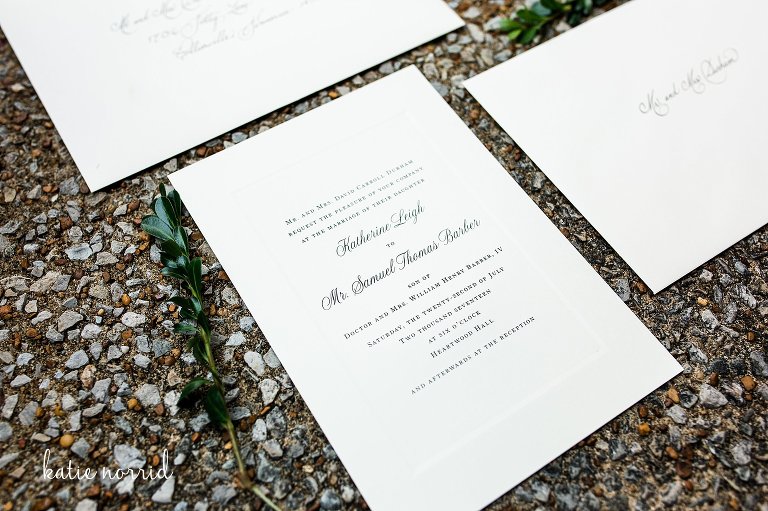 Mr. and Mrs.
Mr. and Mrs. Durham
Mr. and Mrs. David Carroll Durham
request the pleasure of your company
at the marriage of their daughter
Katherine Leigh
to
Mr. Samuel Thomas Barber
son of
Doctor and Mrs. William Henry Barber, IV
Saturday, the twenty-second of July
Two thousand seventeen
at six o'clock
Heartwood Hall
and afterwards at the reception
katie norrid